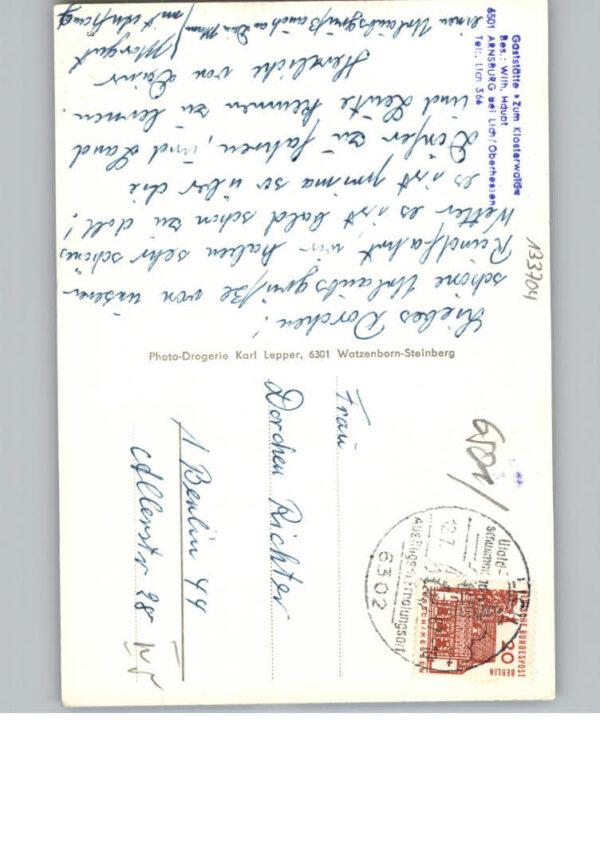 Gaststätte »Zum Klosterwald«
Bes.: Wilh. Haupt
6501 ARNSBURG bei Lich/Oberhessen
Tel.: Lich 366
133704
Liebes Dorchen!
schöne Urlaubsgrüße von unserer
Rundfahrt, wir haben sehr schönes
Wetter es ist bald schon zu doll!
es ist prima so über die
Dörfer zu fahren, und Land
und Leute kennen zu lernen.
Herzliche von Deiner
Margut
einen Urlaubsgruß auch an Dein Mann
Photo-Drogerie Karl Lepper, 6301 Watzenborn-Steinberg
Frau
Dorchen Richter
1 Berlin 44
Allerstr 28
6302
Ausflugs-u. Erholungsort
12.7.
DEUTSCHE BUNDESPOST
BERLIN
20